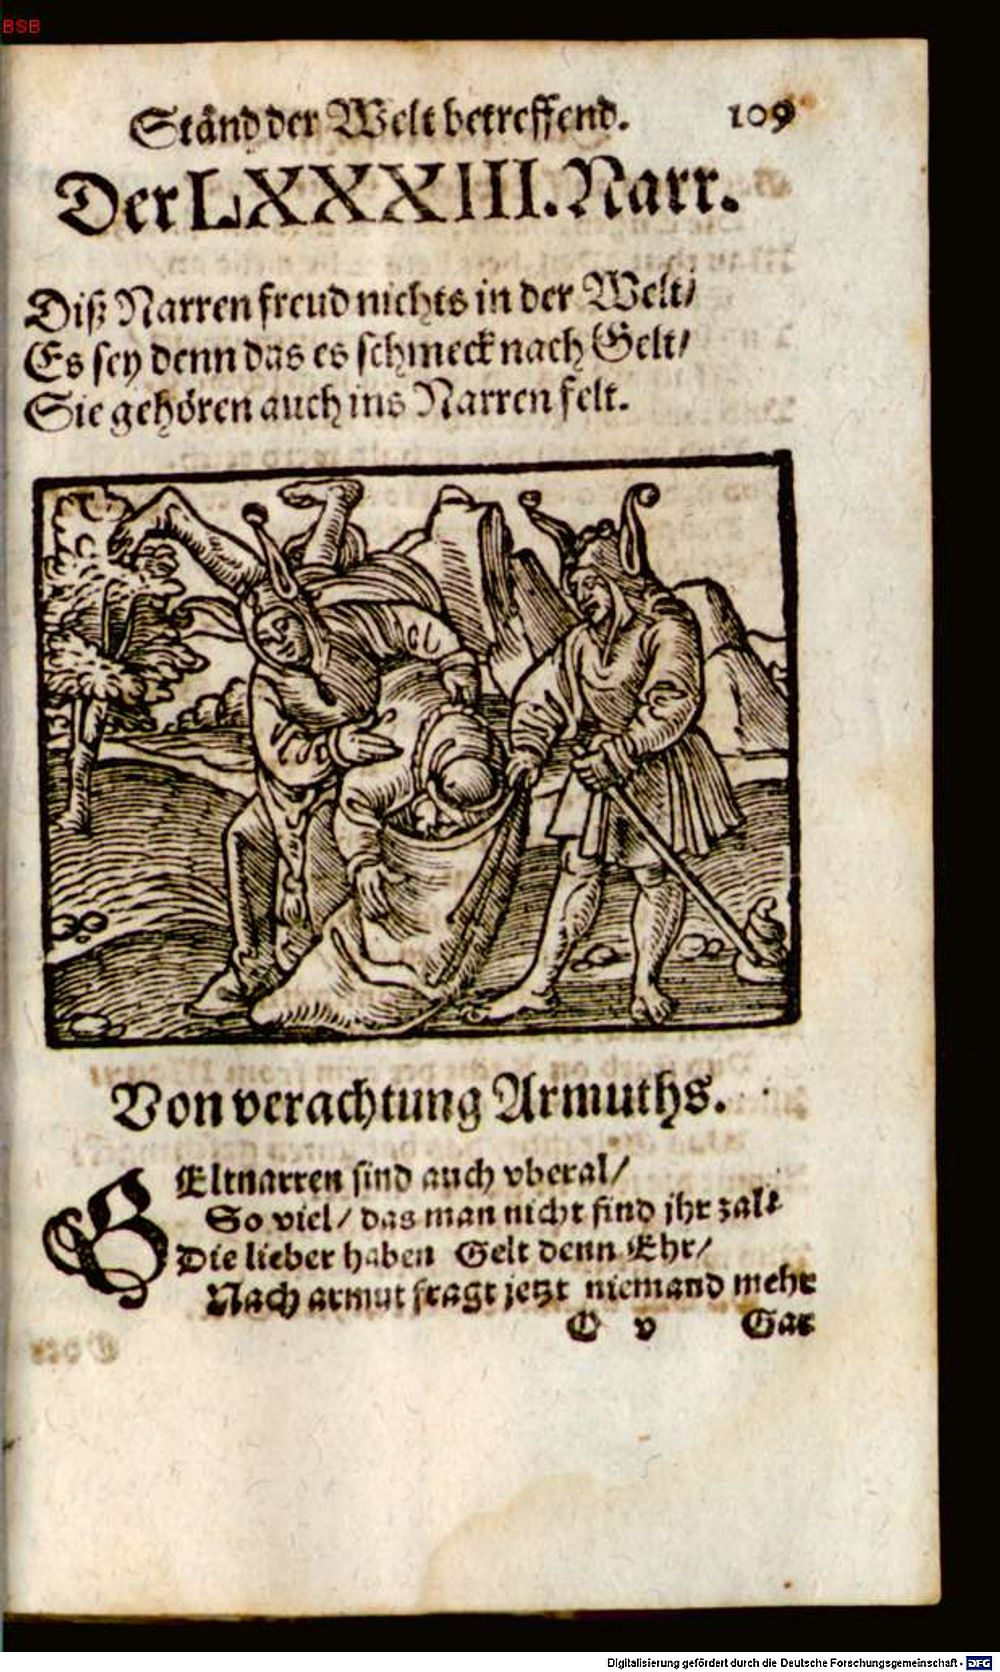 BSB
Ständ der Welt betreffend. 109
Der LXXXIII. Narr.
Diß Narren freud nichts in der Welt/
Es sey denn das es schmeck nach Gelt/
Sie gehören auch ins Narren felt.
Von verachtung Armuths.
GEltnarren sind auch vberal/
So viel/ das man nicht find jhr zal:
Die lieber haben Gelt denn Ehr/
Nach armut fragt jetzt niemand mehr
O v Gar
Digitalisierung gefördert durch die Deutsche Forschungsgemeinschaft - DFG